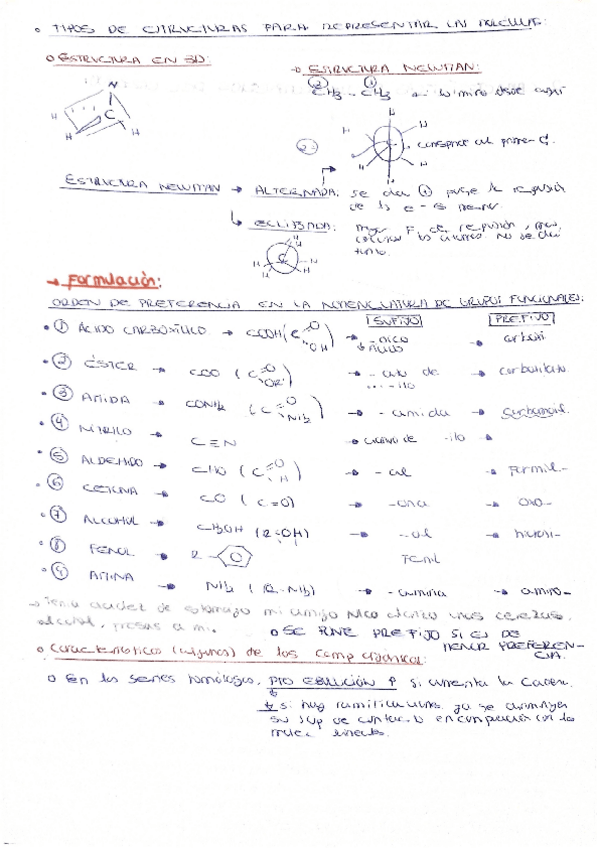 ◦ TIPOS DE ESTRUCTURAS PARA REPRESENTAR LAS MOLÉCULAS:
◦ ESTRUCTURA EN 3D:
→ ESTRUCTURA NEWMAN:
② ①
CH3 - CH3 ← lo miro desde aquí
H
C
H
H
H
H
H
C
H
H
② 
ESTRUCTURA NEWMAN → ALTERNADA: se da
de los e- es menor.
↳ ECLIPSADA: mayor F. de repulsión
H
H
H
C
H
H
→ Formulación:
ORDEN DE PREFERENCIA EN LA NOMENCLATURA DE GRUPOS FUNCIONALES:
SUFIJO PREFIJO
• ① ÁCIDO CARBOXÍLICO → COOH (C =O OH) → -oico ácido → carboxi
• ② ÉSTER → COO (C =O OR') → -ato de ...-ilo
• ③ AMIDA → CONH2 (C =O NH2) → -amida → carbamoil.
• ④ NITRILO → C≡N → -ilo →
• ⑤ ALDEHIDO → CHO (C =O H) → -al → Formil-
• ⑥ CETONA → CO (C=O) → -ona → oxo-
• ⑦ ALCOHOL → CH3OH (R-OH) → -ol → hidroxi-
• ⑧ FENOL → R- Fenil
• ⑨ AMINA → NH2 (R-NH2) → -amina → amino-
→ Tenía acidez de estómago mi amigo Nico cuando unas cerezas,
alcohol, fresas a mi.
◦ SE PONE PREFIJO SI ES DE
MENOR PREFEREN-
CIA.
◦ Características (algunas) de los comp orgánicos:
◦ En las series homólogas, PTO EBULLICIÓN ↑ si aumenta la cadena.
↓ si hay ramificaciones, ya se disminuye
su sup de contacto en comparación con la
molec lineales.